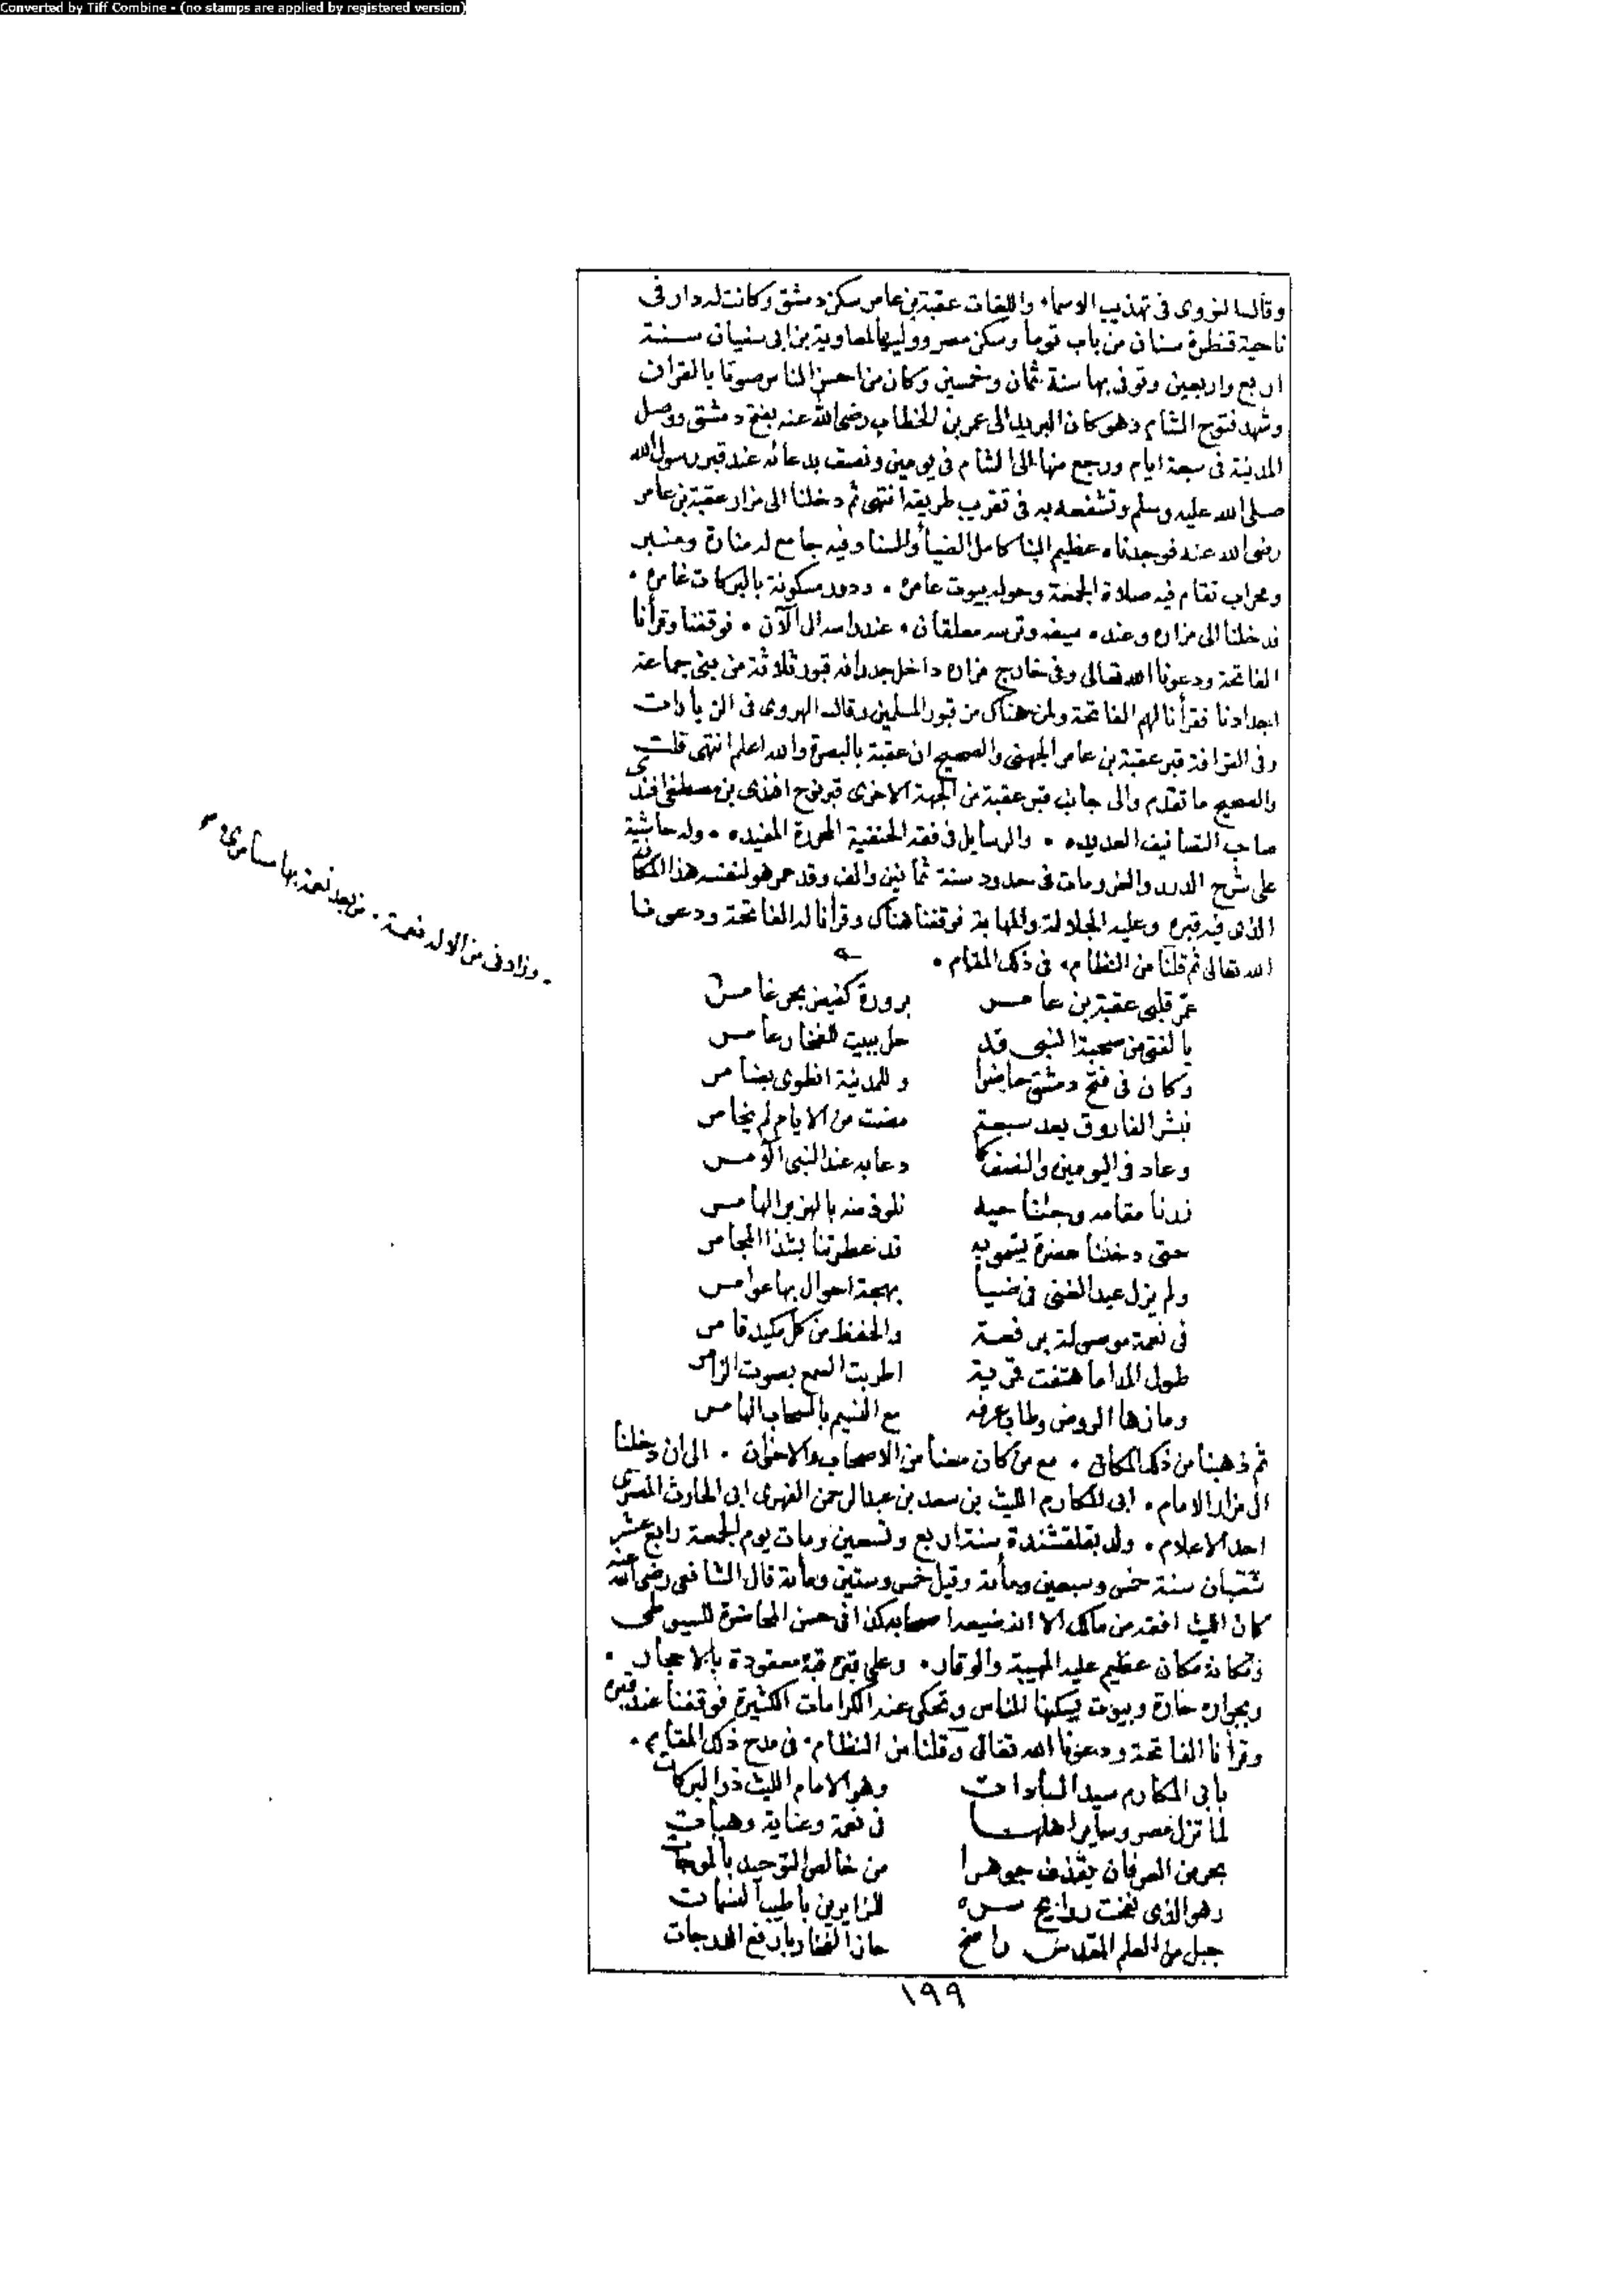 Converted by Tiff Combine - (no stamps are applied by registered version)
وقال النووى فى تهذيب الاسماء واللغات عقبة بن عامر سكن دمشق وكانت له دار فى
ناحية قنطرة سنان من باب توما وسكن مصر ووليها لمعاوية بن ابى سفيان سنة
اربع واربعين وتوفى بها سنة ثمان وخمسين وكان من احسن الناس صوتا بالقران
وشهد فتوح الشام وهو كان البريد الى عمر بن الخطاب رضى الله عنه بفتح دمشق ووصل
المدينة فى سبعة ايام ورجع منها الى الشام فى يومين ونصف بدعائه عند قبر رسول الله
صلى الله عليه وسلم وتشفعه به فى تقريب طريقه انتهى ثم دخلنا الى مزار عقبة بن عامر
رضى الله عنه فوجدناه عظيم البنا كامل الضيأ والسنا وفيه جامع له منارة ومنبر
ومحراب تقام فيه صلاة الجمعة وحوله بيوت عامره . ودور مسكونة بالبركات غامره .
فدخلنا الى مزاره وعنده سيفه وترسه معلقان . عند راسه الى الآن . فوقفنا وقرأنا
الفاتحة ودعونا الله تعالى وفى خارج مزاره داخل جدرانه قبور ثلاثة من بنى جماعة
اجدادنا فقرأنا لهم الفاتحة ولمن هناك من قبور المسلمين وقال الهروى فى الزيارات
وفى القرافة قبر عقبة بن عامر الجهنى والصحيح ان عقبة بالبصرة والله اعلم انتهى قلت
والصحيح ما تقدم والى جانب قبر عقبة من الجهة الاخرى قبر نوح افندى بن مصطفى افندى
صاحب التصانيف العديده . والرسايل فى فقه الحنفية المحررة المفيده . وله حاشية
على شرح الدرر والغرر ومات فى حدود سنة ثمانين والف وقد عمر هو لنفسه هذا المكان
الذى فيه قبره وعليه الجلالة والمهابة فوقفنا هناك وقرأنا له الفاتحة ودعونا
الله تعالى ثم قلنا من النظام . فى ذلك المقام .
عمّر قلبى عقبة بن عامر بزورة كفيض بحر غامر
يا لفتى من صحبة النبى قد حل ببيت للفخار عامر
وكان فى فتح دمشق حاضرا وللمدينة انطوى بضامر
فبشر الفاروق بعد سبعة مضت من الايام لم يخامر
وعاد فى اليومين والنصف دعا به عند النبى الآمر
زرنا مقامه وجئنا حيه نلوذ منه بالهزبر الهامر
حتى دخلنا حضرة يسمو به قد عطرتنا بشذا المجامر
ولم يزل عبد الغنى فى ضيا بهجة احوال بها عوامر
فى نعمة موصولة برفعة والحفظ من كل مكيد قامر
طول المدا ما هتفت قمرية اطربت السمع بصوت الزامر
وما زها الروض وطاب عرفه مع النسيم بالسحاب الهامر
. وزادنى من الاله نعمة . من بعد نعمة بها
ثم ذهبنا من ذلك المكان . مع من كان معنا من الاصحاب والاخوان . الى ان دخلنا
الى مزار الامام . ابى المكارم الليث بن سعد بن عبد الرحمن الفهرى ابى الحارث المصرى
احد الاعلام . ولد بقلقشندة سنة اربع وتسعين ومات يوم الجمعة رابع عشر
شعبان سنة خمس وسبعين ومأة وقيل خمس وستين ومأة قال الشافعى رضى الله عنه
كان الليث افقه من مالك الا انه ضيعه اصحابه كذا فى حسن المحاضرة للسيوطى
ومكانه مكان عظيم عليه الهيبة والوقار . وعلى قبره قبة معقودة بالاحجار .
وبجواره حارة وبيوت يسكنها الناس وتحكى عنه الكرامات الكثيرة فوقفنا عند قبره
وقرأنا الفاتحة ودعونا الله تعالى وقلنا من النظام . فى مدح ذلك المقام .
بابى المكارم سيد السادات وهو الامام الليث ذو البركات
لما تزل مصر وساير اهلها فى نعمة وعناية وهبات
بحر من العرفان يقذف جوهرا من خالص التوحيد بالموجات
وهو الذى نفحت روايح سره للزايرين باطيب النسمات
جبل من العلم المقدس راسخ حاز الفخار بارفع الدرجات
١٩٩